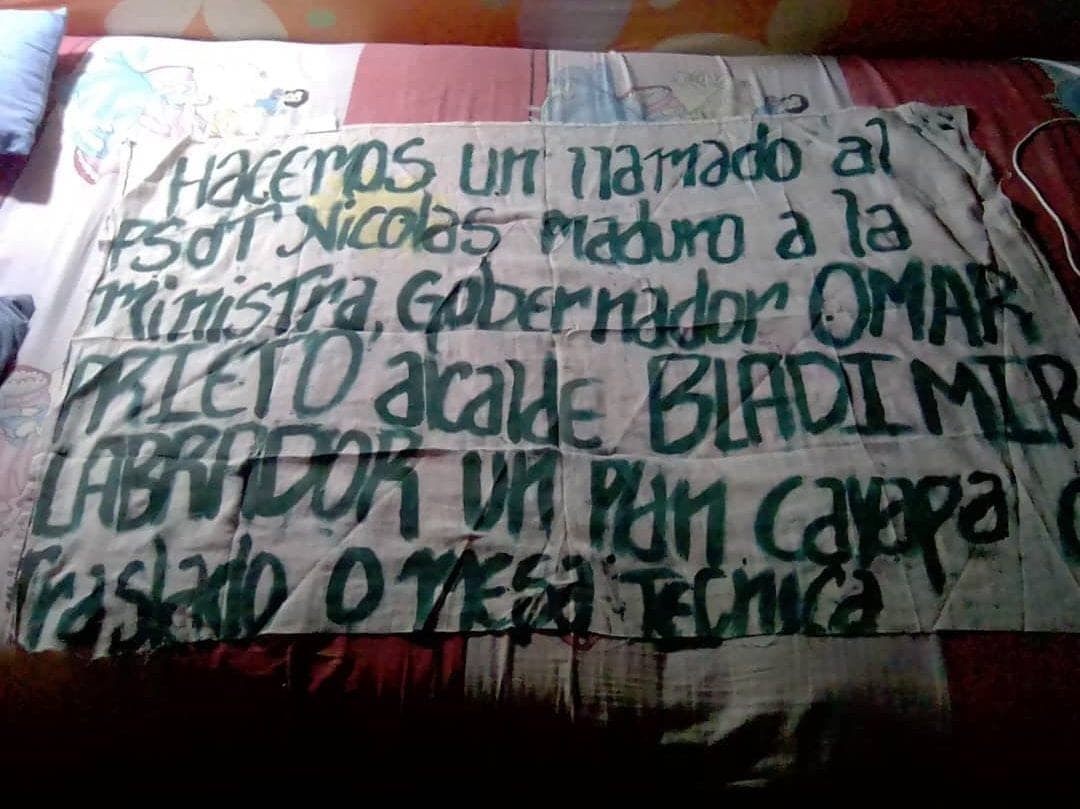 HacEmos un llamado al
PSdT Nicolas maduro a la
ministra, Gobernador OMAR
PRIETO alcalde BLADIMIR
LABRADOR un Plan cayapa o
Traslado o mesa Tecnica